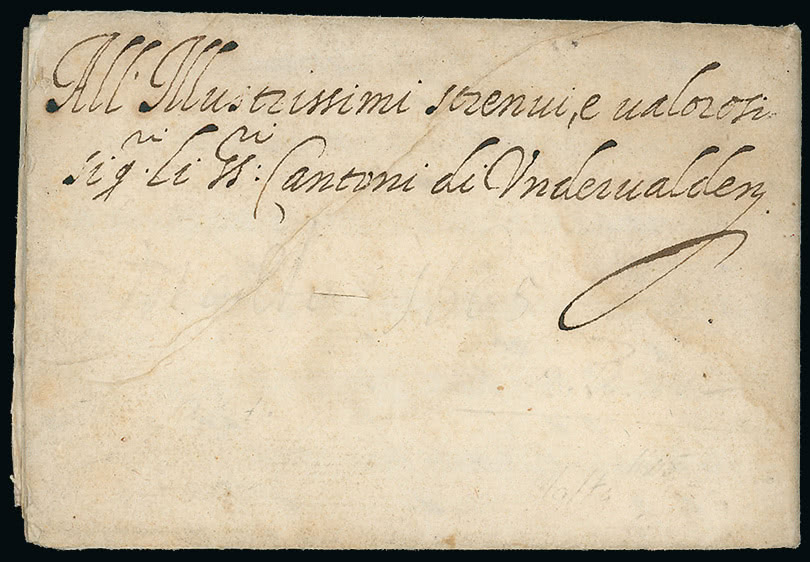 All' Illustrissimi strenui, e ualorosi
sig.ri li SS.ri Cantoni di Vnderualden